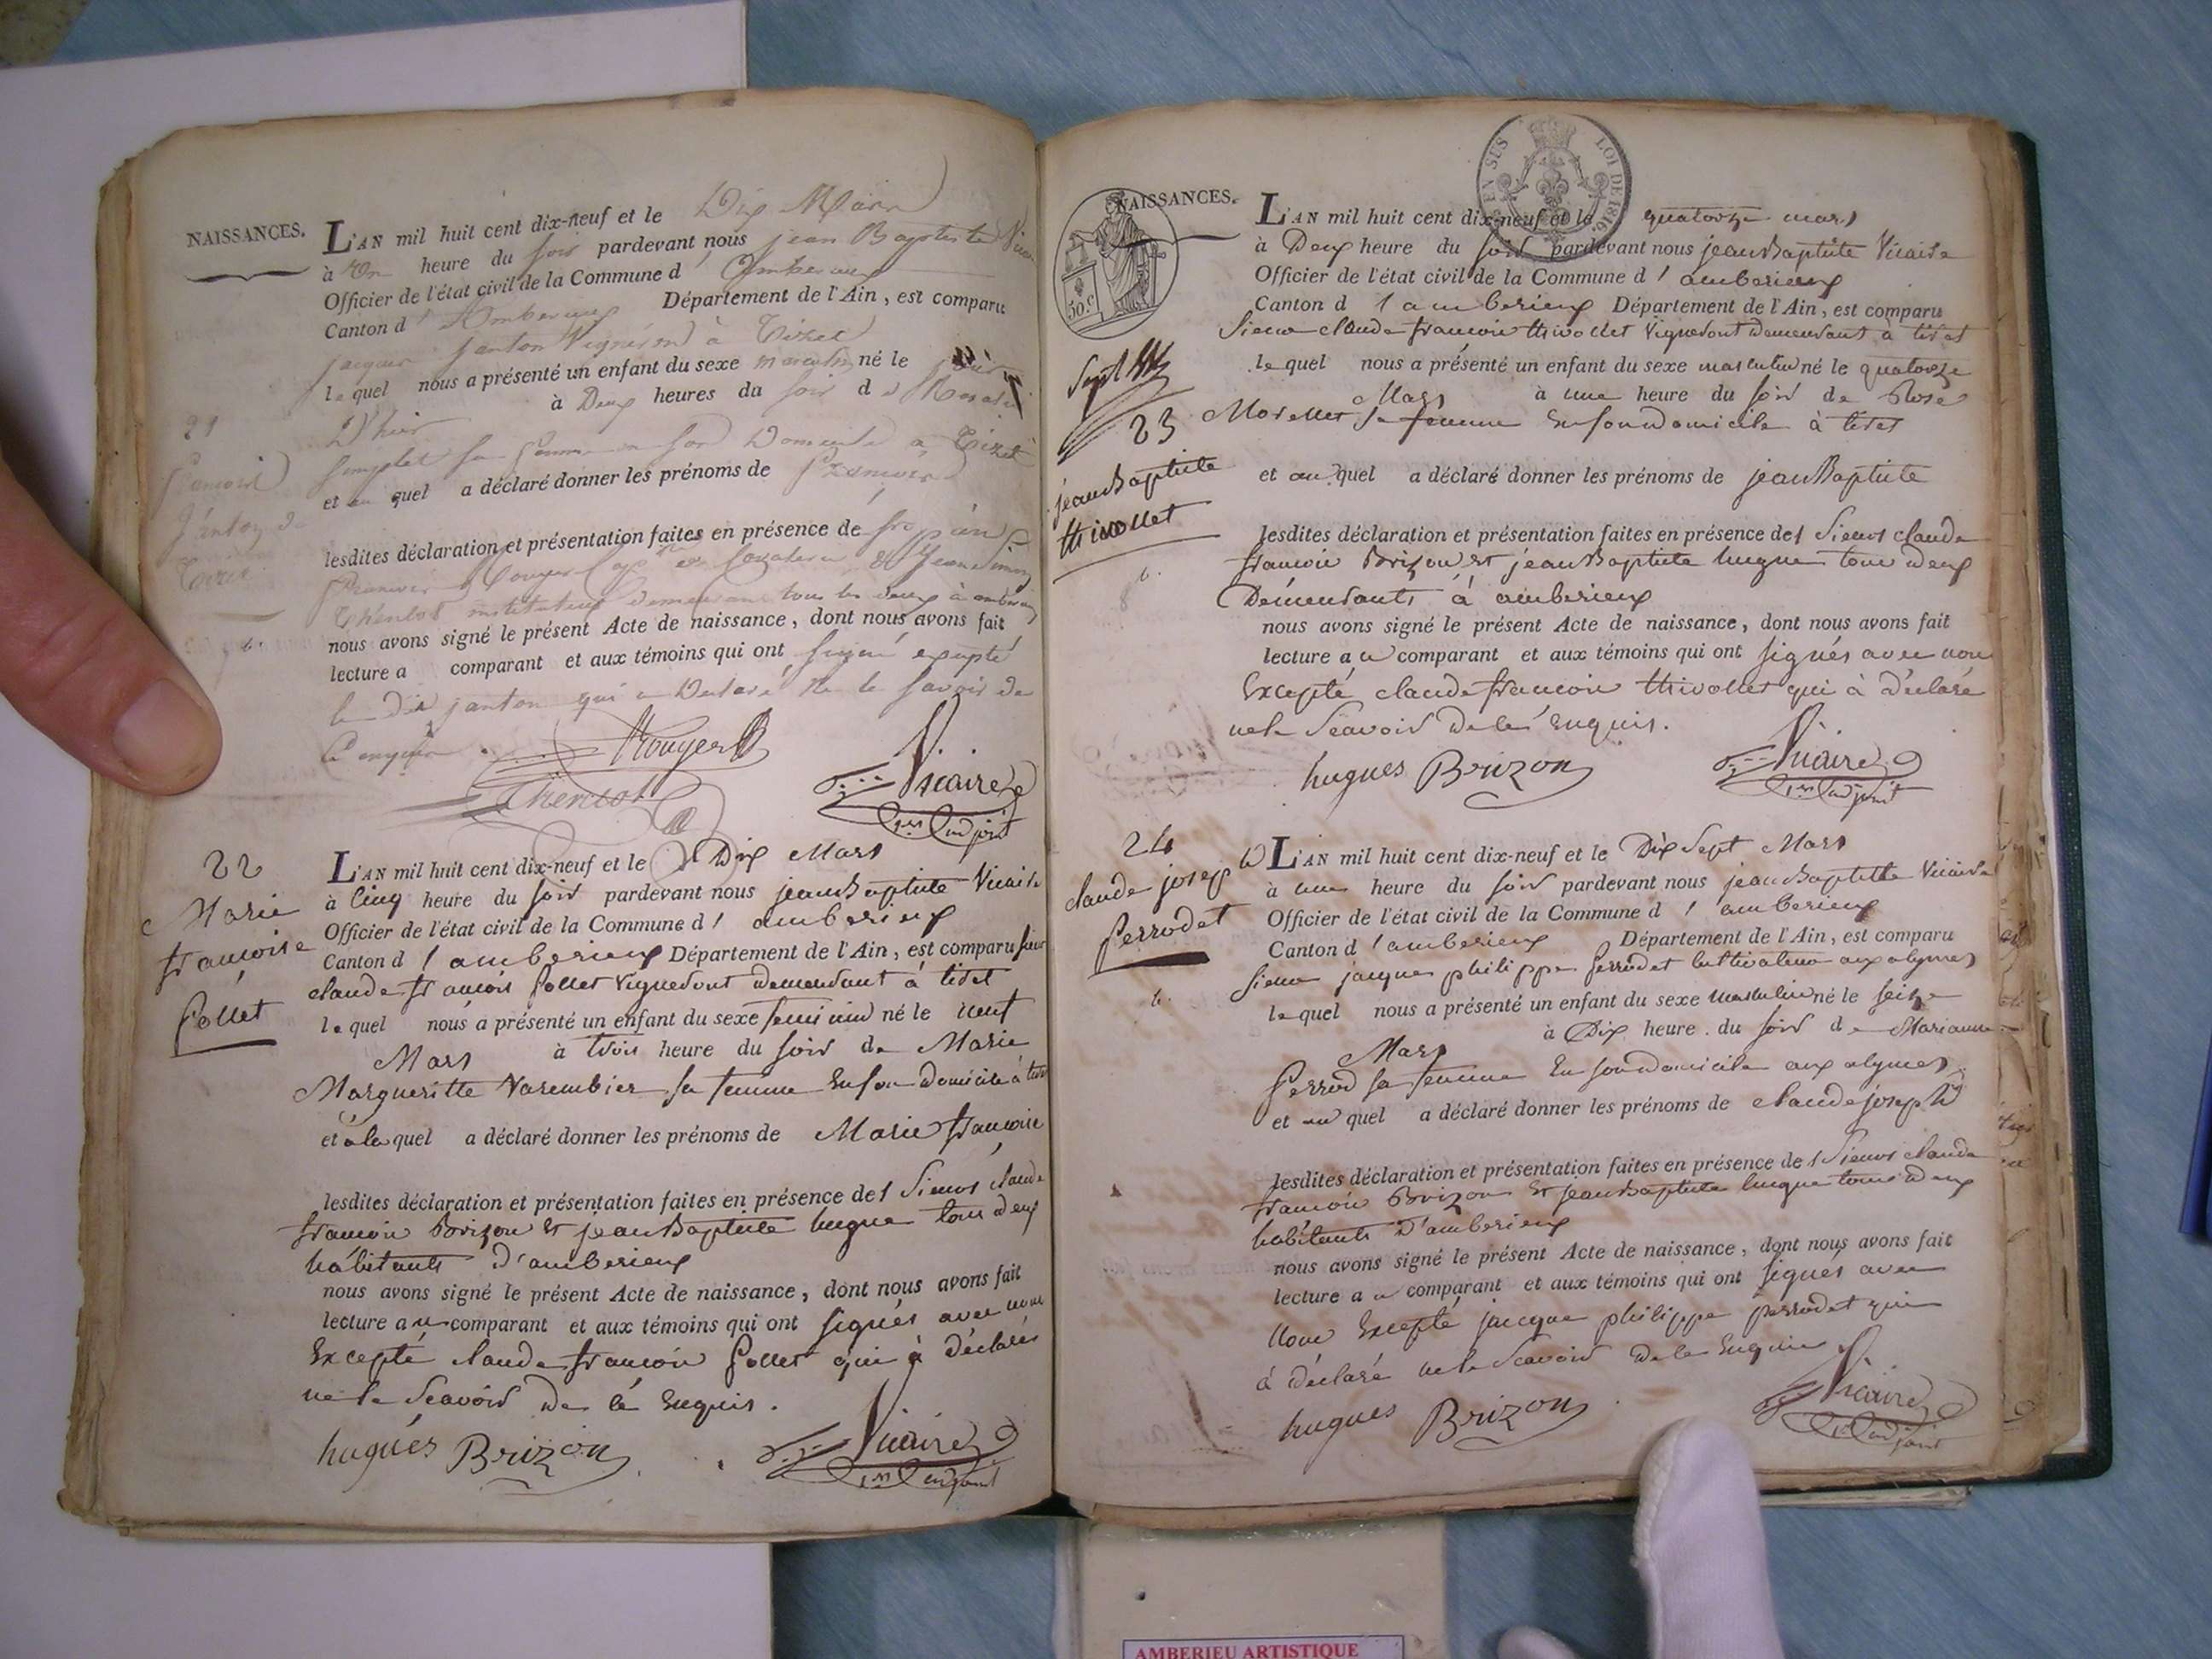 NAISSANCES.
L'AN mil huit cent dix-neuf et le Dix Mars
à Une heure du soir pardevant nous jean Baptiste Vicaire
Officier de l'état civil de la Commune d' Amberieux
Canton d' Amberieux Département de l'Ain, est comparu
jacques janton Vigneron à Tiret
lequel nous a présenté un enfant du sexe masculin né le
D'hier à Deux heures du soir de
sa femme en son Domicile à Tiret
et au quel a déclaré donner les prénoms de François
21
François
janton de
Tiret
lesdites déclaration et présentation faites en présence de
François Rouyer et jean Simon
Thénlot instituteur demeurant tous les deux à amberieux
nous avons signé le présent Acte de naissance, dont nous avons fait
lecture a comparant et aux témoins qui ont signé excepté
le dit janton qui a Déclaré ne le savoir de
Vicaire
1er adjoint
22
Marie
francoise
Pollet
L'AN mil huit cent dix-neuf et le Dix Mars
à Cinq heure du soir pardevant nous jean Baptiste Vicaire
Officier de l'état civil de la Commune d' amberieux
Canton d' amberieux Département de l'Ain, est comparu sieur
claude francois pollet Vigneront demeurant à tiret
lequel nous a présenté un enfant du sexe feminin né le neuf
Mars à trois heure du soir de Marie
Margueritte Varembier sa femme En son Domicile à tiret
et à laquel a déclaré donner les prénoms de Marie francoise
lesdites déclaration et présentation faites en présence des Sieurs claude
francois Brizon Et jean Baptiste hugue tous deux
habitants D'amberieux
nous avons signé le présent Acte de naissance, dont nous avons fait
lecture au comparant et aux témoins qui ont signés avec nous
Excepté claude francois pollet qui à déclarés
ne le Scavoir de cé Enquis.
hugués Brizon Vicaire
1er adjoint
NAISSANCES.
EN SUS LOI DE 1816.
50.c
L'AN mil huit cent dix-neuf et le quatorze mars
à Deux heure du soir pardevant nous jean Baptiste Vicaire
Officier de l'état civil de la Commune d' amberieux
Canton d' amberieux Département de l'Ain, est comparu
Sieur claude francois thivollet Vigneront demeurant à tiret
lequel nous a présenté un enfant du sexe masculin né le quatorze
Mars à une heure du soir de Rose
Morellet sa femme En son domicile à tiret
23
jean Baptiste
thivollet
et au quel a déclaré donner les prénoms de jean Baptiste
lesdites déclaration et présentation faites en présence des Sieurs claude
francois Brizon Et jean Baptiste hugue tous deux
Demeurants à amberieux
nous avons signé le présent Acte de naissance, dont nous avons fait
lecture au comparant et aux témoins qui ont signés avec nous
Excepté claude francois thivollet qui à déclaré
ne le Scavoir de ce Enquis.
hugues Brizon Vicaire
1er adjoint
24
claude joseph
perrodet
L'AN mil huit cent dix-neuf et le Dix Sept Mars
à une heure du soir pardevant nous jean Baptiste Vicaire
Officier de l'état civil de la Commune d' amberieux
Canton d' amberieux Département de l'Ain, est comparu
Sieur jacque philippe perrodet cultivateur aux alymes
lequel nous a présenté un enfant du sexe masculin né le seize
Mars à Dix heure du soir de Marianne
Perrod sa femme En son domicile aux alymes
et au quel a déclaré donner les prénoms de claude joseph
lesdites déclaration et présentation faites en présence des Sieurs claude
francois Brizon Et jean Baptiste hugue tous deux
habitants D'amberieux
nous avons signé le présent Acte de naissance, dont nous avons fait
lecture au comparant et aux témoins qui ont signés avec
nous Excepté jacque philippe perrodet qui
à déclaré ne le Scavoir de ce Enquis
hugues Brizon Vicaire
1er adjoint
AMBERIEU ARTISTIQUE